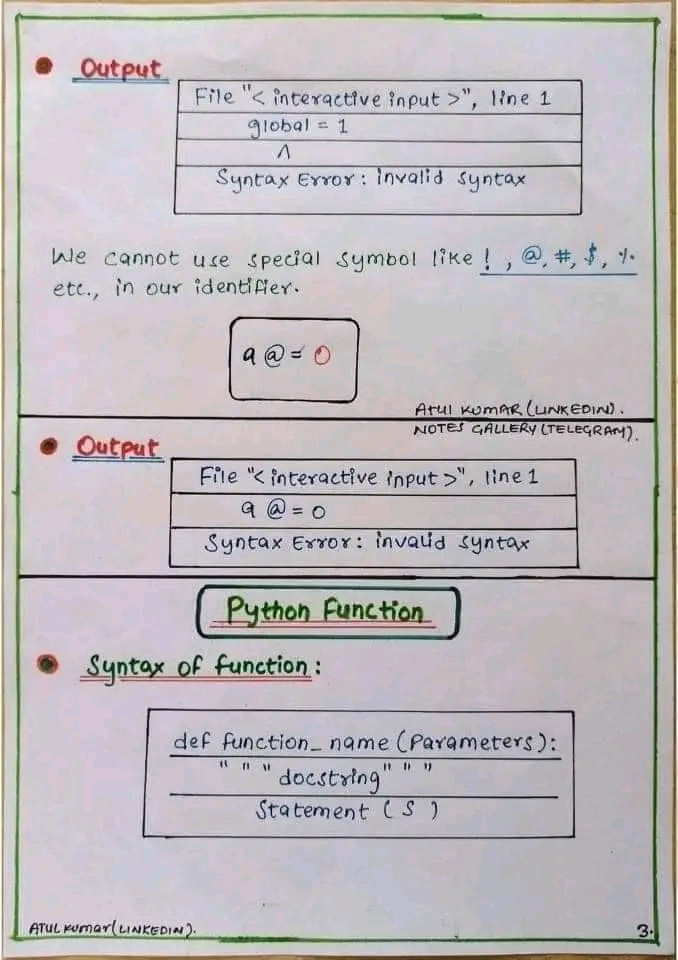 Output
File "< interactive input >", line 1
global = 1
^
Syntax Error: invalid syntax
We cannot use special symbol like !, @, #, $, %
etc., in our identifier.
a @ = 0
Atul Kumar (LINKEDIN).
NOTES GALLERY (TELEGRAM).
Output
File "< interactive input >", line 1
a @ = 0
Syntax Error: invalid syntax
Python Function
Syntax of function:
def function_name (Parameters):
" " " docstring " " "
Statement (S)
ATUL Kumar (LINKEDIN).
3.